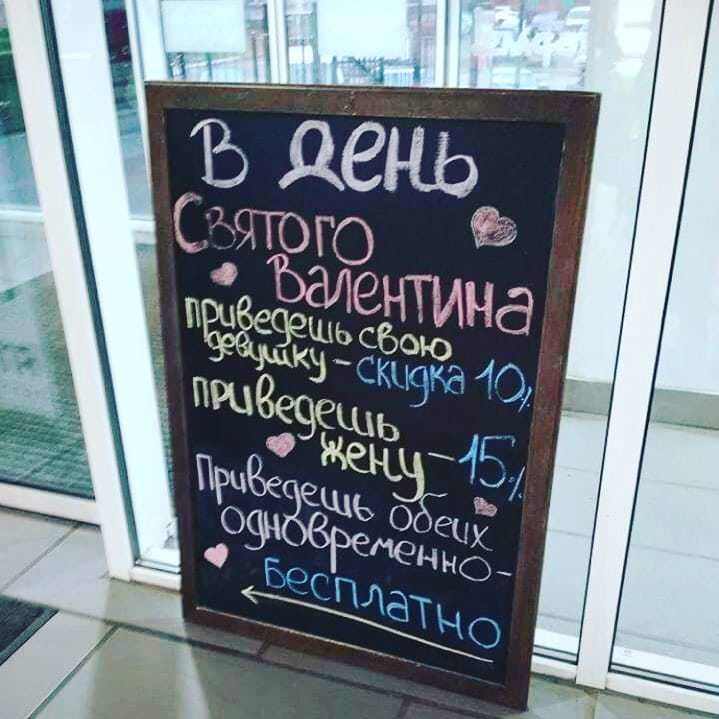 В День
Святого
Валентина
приведешь свою
девушку - скидка 10%
приведешь
жену - 15%
Приведешь обеих
одновременно -
Бесплатно